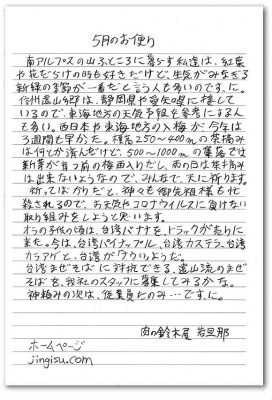 5月のお便り
南アルプスの山ふところに暮らす私達は、紅葉
や花だらけの時も好きだけど、生気がみなぎる
新緑の季節が一番だと言う人も多いのです、に。
信州遠山郷は、静岡県や愛知県に接して
いるので、東海地方の天気予報を参考にする人
も多い。西日本や東海地方の入梅が、今年は
3週間も早かった。標高250〜400mの茶摘み
は何とか済んだけど、500〜1000mの集落では
新芽が育つ前の梅雨入りだし、雨の日は茶摘み
は出来ないようなので、みんなで、天に祈ります。
祈ってばかりだと、神々も御先祖様も忙
殺されるので、お天気やコロナウイルスに負けない
取り組みをしようと思います。
オラの子供の頃は、台湾バナナを、トラックが売りに
来た。今は、台湾パイナップル、台湾カステラ、台湾
カラアゲと、台湾が「ウリ」ようだ。
台湾まぜそばに対抗できる、遠山流のまぜ
そばを、我社のスタッフに募集してみるかな。
神頼みの次は、従業員だのみ…ですに。
肉の鈴木屋 若旦那
ホームページ
jingisu.com